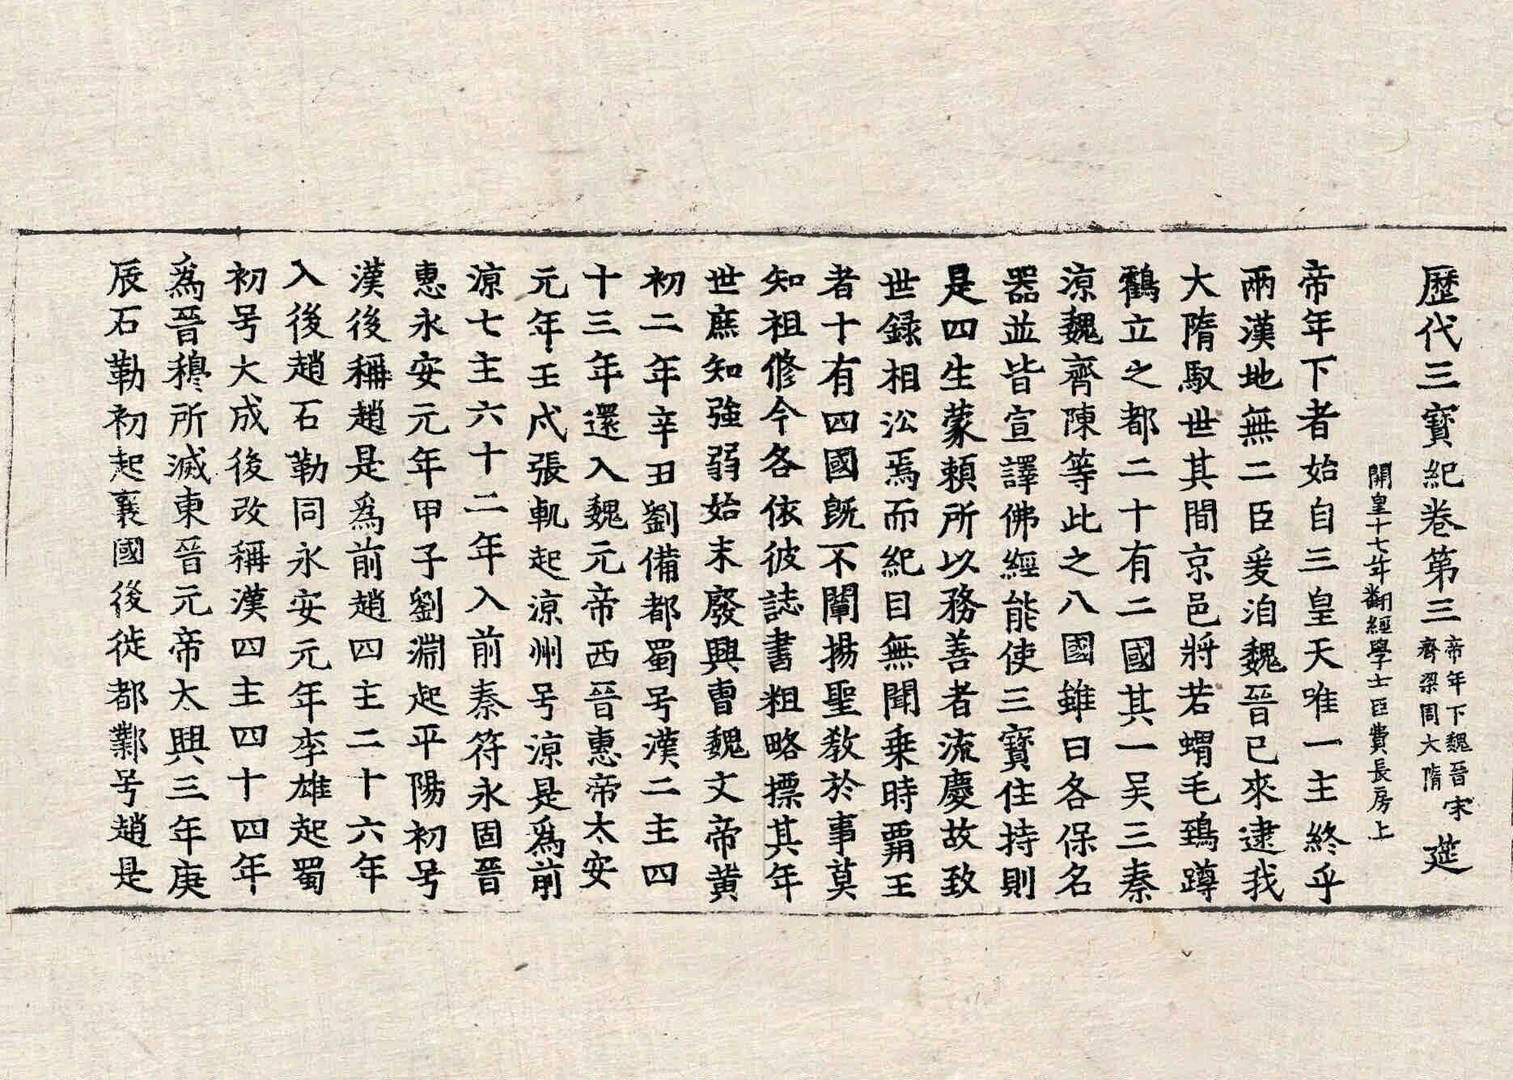 歷代三寶紀卷第三 帝年下魏晉宋齊梁周大隋 筵
開皇十七年翻經學士臣費長房上
帝年下者始自三皇天唯一主終乎
兩漢地無二臣爰洎魏晉已來逮我
大隋馭世其間京邑將若蝟毛鵄蹲
鶴立之都二十有二國其一吴三秦
涼魏齊陳等此之八國雖曰各保名
器並皆宣譯佛經能使三寶住持則
是四生蒙賴所以務善者流慶故致
世録相㳂焉而紀目無聞乗時覇王
者十有四國旣不闡揚聖教於事莫
知祖修今各依彼誌書粗略摽其年
世庶知強弱始末廢興曹魏文帝黄
初二年辛丑劉備都蜀号漢二主四
十三年還入魏元帝西晉惠帝太安
元年壬戌張軌起涼州号涼是爲前
涼七主六十二年入前秦符永固晉
惠永安元年甲子劉淵起平陽初号
漢後稱趙是爲前趙四主二十六年
入後趙石勒同永安元年李雄起蜀
初号大成後改稱漢四主四十四年
爲晉穆所滅東晉元帝太興三年庚
辰石勒初起襄國後徙都鄴号趙是